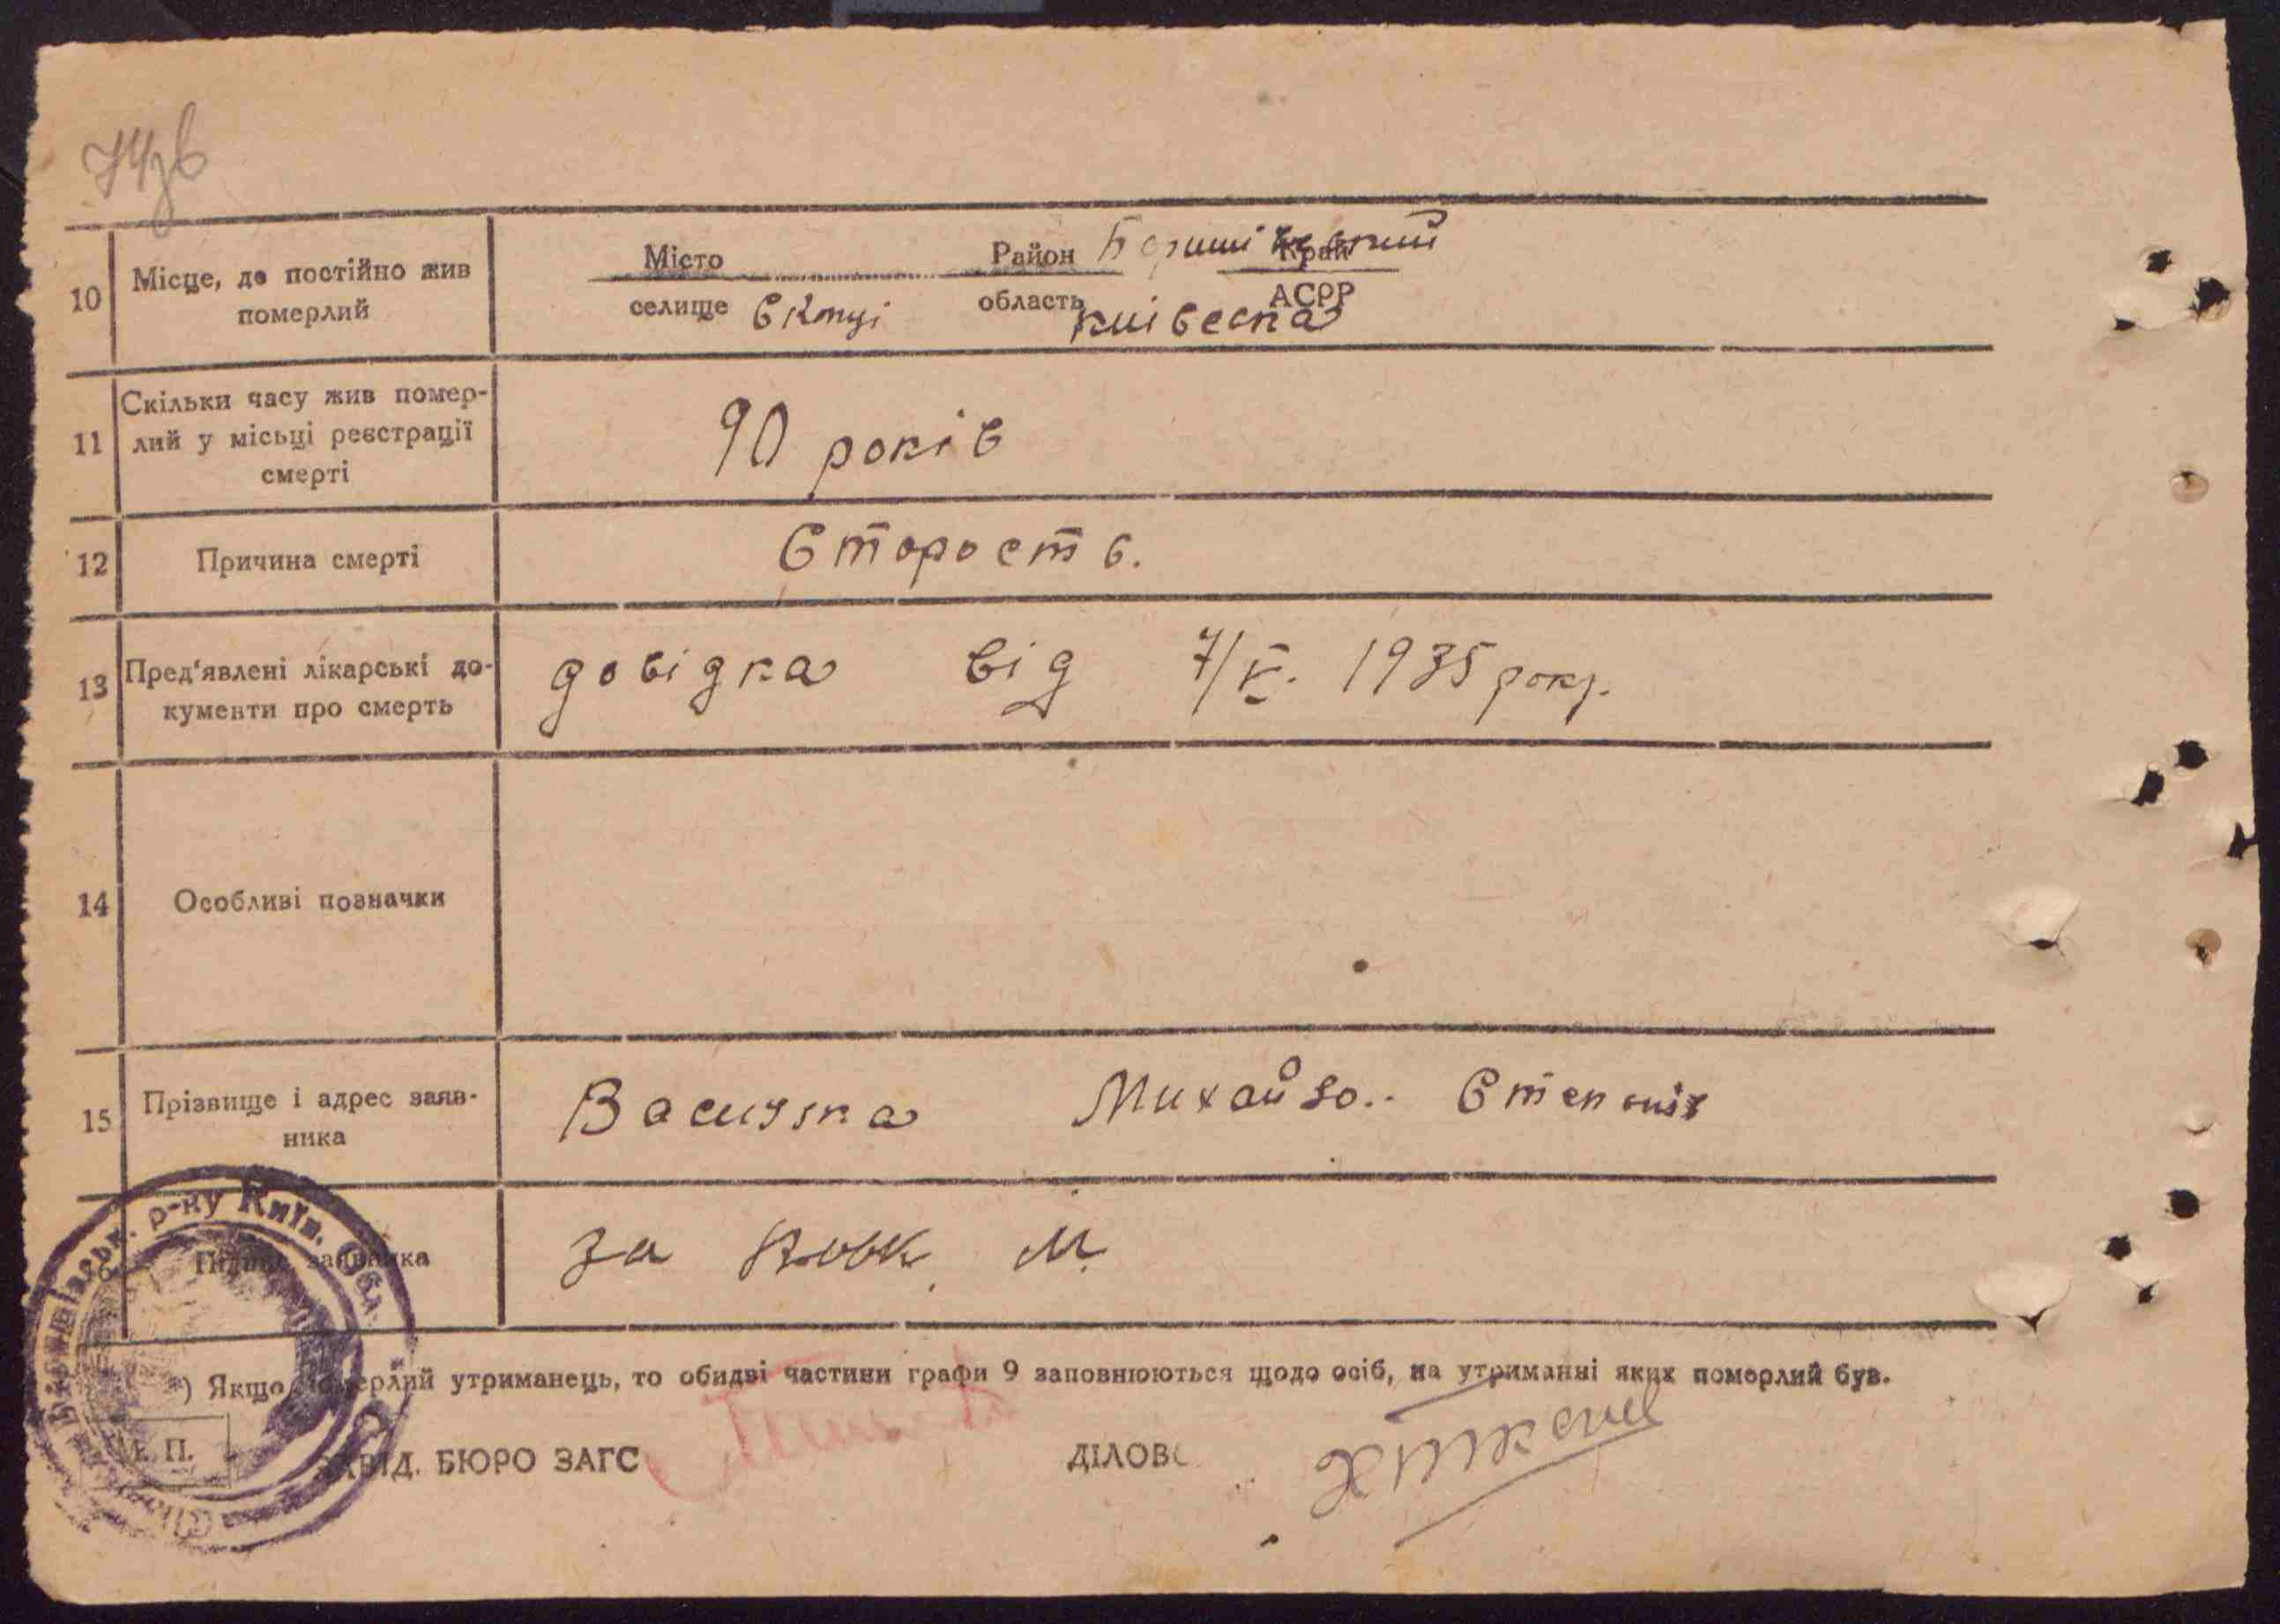 10
Місце, де постійно жив
померлий
Місто Район Край
селище Скопці область АСРР
Київсска
11
Скільки часу жив помер-
лий у місьці реєстрації
смерті
90 років
12
Причина смерті
Старость.
13
Пред'явлені лікарські до-
кументи про смерть
довідка від 7/V. 1935 року.
14
Особливі позначки
15
Прізвище і адрес заяв-
ника
Михайло
Підпис заявника
за М.
р-ну Київ. Обл.
*) Якщо померлий утриманець, то обидві частини графи 9 заповнюються щодо осіб, на утриманні яких померлий був.
М. П.
ЗАВІД. БЮРО ЗАГС ДІЛОВ